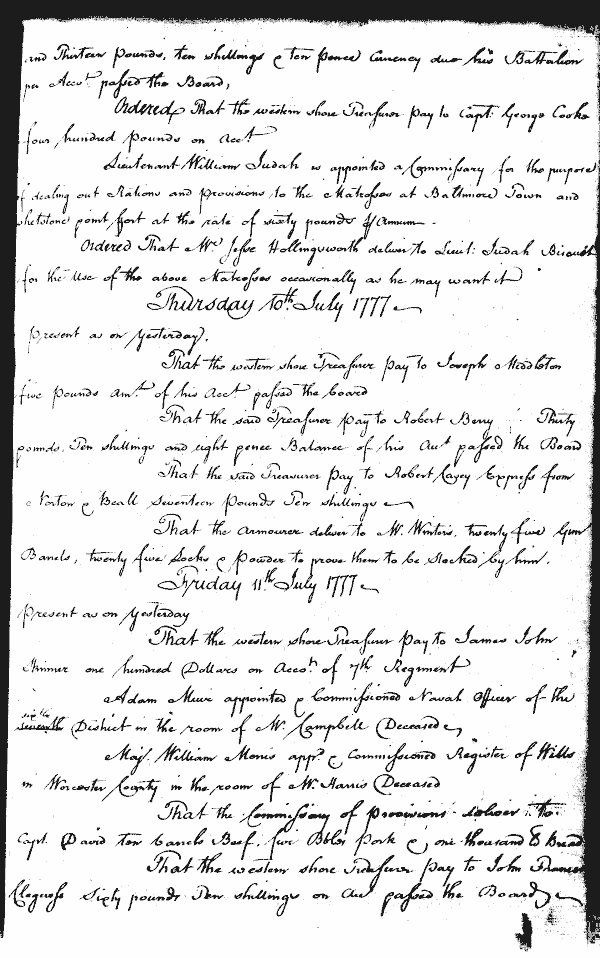 and Thirteen pounds, ten shillings & ten pence Currency due his Battalion
per Acco.t passed the Board,
Ordered That the western shore Treasurer pay to Capt. George Cooke
four hundred pounds on Acc.t
Lieutenant William Judah is appointed a Commissary for the purpose
of dealing out Rations and provisions to the Matrosses at Baltimore Town and
whetstone point fort at the rate of sixty pounds P Annum.
Ordered That Mr. Jesse Hollingsworth deliver to Lieut: Judah Biscuit
for the Use of the above Matrosses occasionally as he may want it
Thursday 10th. July 1777
Present as on Yesterday.
That the western shore Treasurer pay to Joseph Middleton
five pounds Am.t of his Acc.t passed the board
That the said Treasurer pay to Robert Berry Thirty
pounds, Ten shillings and eight pence Balance of his Acc.t passed the Board
That the said Treasurer pay to Robert Casey Express from
Norton & Beall seventeen pounds Ten shillings
That the Armourer deliver to Mr. Winters, twenty five Gun
Barrels, twenty five Locks & Powder to prove them to be stocked by him.
Friday 11th. July 1777
Present as on Yesterday
That the western shore Treasurer pay to James John
Skinner one hundred Dollars on Acco.t of 7th Regiment
Adam Muir appointed & Commissioned Naval Officer of the
sixth
seventh District in the room of Mr. Campbell Deceased
Maj.r William Morris app.d & Commissioned Register of Wills
in Worcester County in the room of Mr. Harris Deceased
That the Commissary of provisions deliver to
Capt. David ten barrels Beef, five Bbls Pork & one thousand lb Bread
That the western shore Treasurer pay to John Francis
sixty pounds Ten shillings on Acc.t passed the Board